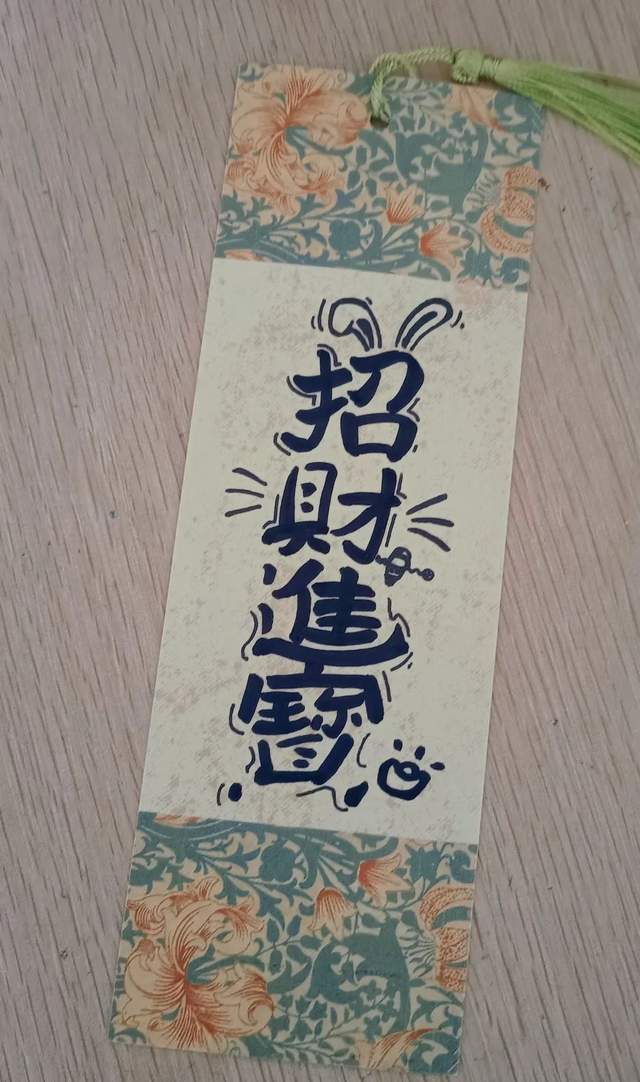 招
財
進
寶